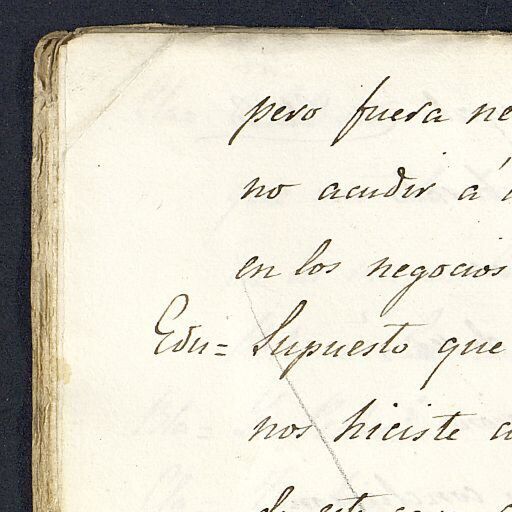 pero fuera ne
no acudir á
en los negocios
Edu= Supuesto que
nos hiciste